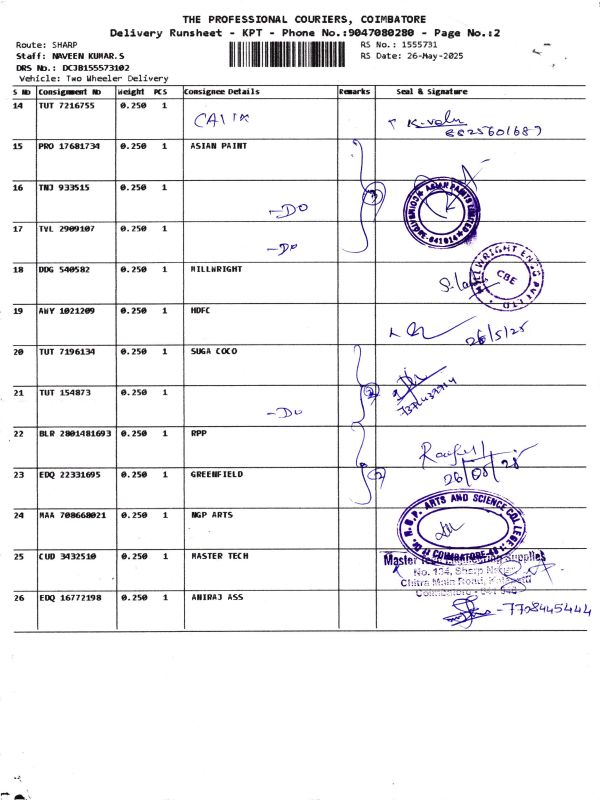 THE PROFESSIONAL COURIERS, COIMBATORE
Delivery Runsheet - KPT - Phone No.:9047080280 - Page No.:2
Route: SHARP
RS No.: 1555731
Staff: NAVEEN KUMAR.S
RS Date: 26-May-2025
DRS No.: DCJB155573102
Vehicle: Two Wheeler Delivery
S No Consignment No Weight PCS Consignee Details Remarks Seal & Signature
14 TUT 7216755 0.250 1
15 PRO 17681734 0.250 1 ASIAN PAINT
16 TNJ 933515 0.250 1 -DO
17 TVL 2909107 0.250 1 -DO
ASIAN PAINTS LIMITED
18 DDG 540582 0.250 1 MILLWRIGHT
MILLWRIGHT ENGG PVT LTD
CBE
19 AWY 1021209 0.250 1 HDFC
26/5/25
20 TUT 7196134 0.250 1 SUGA COCO
21 TUT 154873 0.250 1 -DO
22 BLR 2801481693 0.250 1 RPP
23 EDQ 22331695 0.250 1 GREENFIELD
24 MAA 708668021 0.250 1 NGP ARTS
ARTS AND SCIENCE COLLEGE
COIMBATORE-48
25 CUD 3432510 0.250 1 MASTER TECH
Master Tech Engineering Supplies
No. 134, Sharp Nagar
Chitra Main Road, Kalapatti
Coimbatore - 641 048
26 EDQ 16772198 0.250 1 ANIRAJ ASS
-7708445444